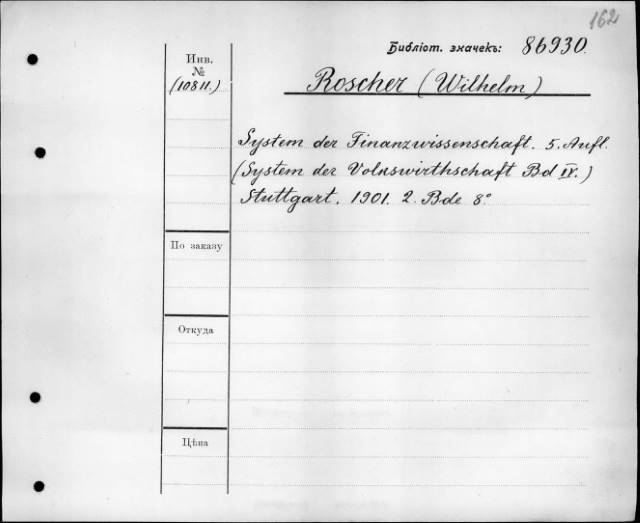 162
Библіот. значекъ: 86930.
Инв.
№
(10811.)
Roscher (Wilhelm)
System der Finanzwissenschaft. 5. Aufl.
(System der Volkswirthschaft Bd IV.)
Stuttgart. 1901. 2. Bde 8°
По заказу
Откуда
Цѣна